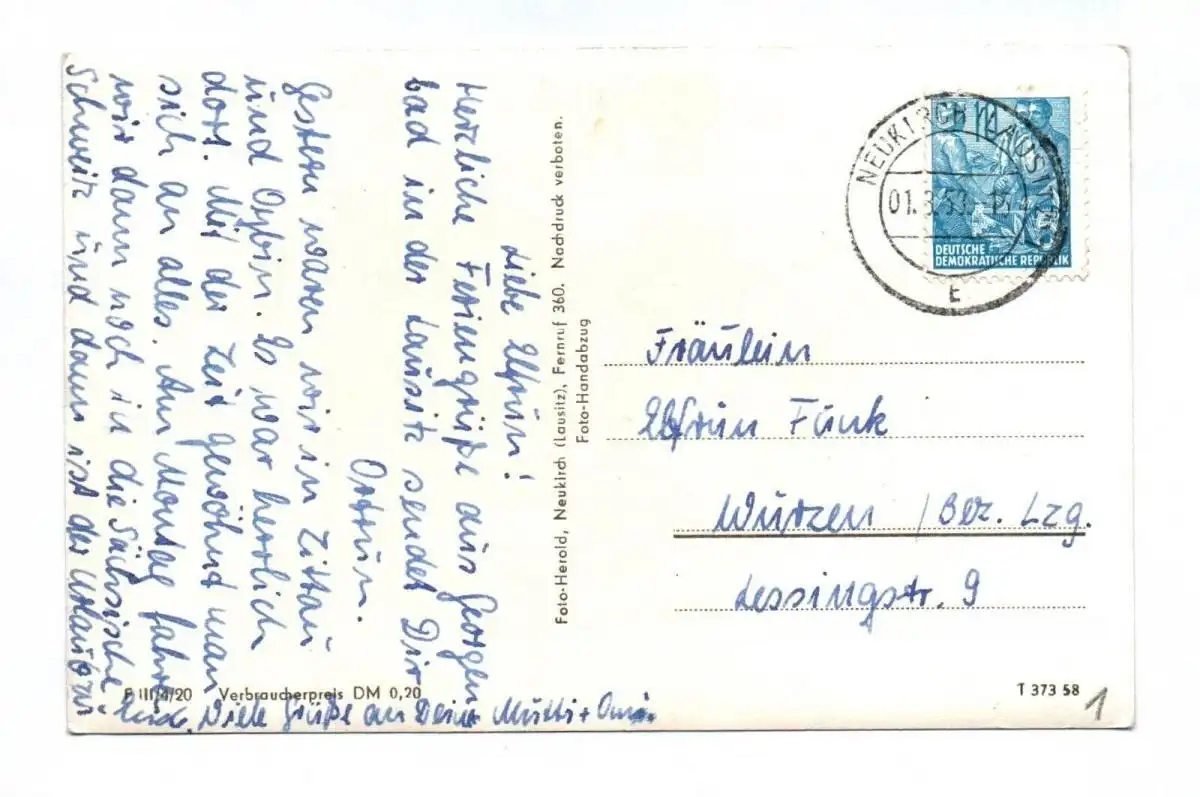 Liebe Elfrun!
Herzliche Feriengrüße aus Georgen
bad in der Lausitz sendet Dir
Ortrun.
Gestern waren wir in Zittau
und Oybin. Es war herrlich
dort. Mit der Zeit gewöhnt man
sich an alles. Am Montag fahren
wir dann noch in die Sächsische
Schweiz und dann ist der Urlaub zu
Ende. Viele Grüße an Deine Mutti + Omi.
F III/4/20 Verbraucherpreis DM 0,20
Foto-Herold, Neukirch (Lausitz), Fernruf 360. Nachdruck verboten.
Foto-Handabzug
NEUKIRCH (LAUSITZ)
01.8.59
E
DEUTSCHE
DEMOKRATISCHE REPUBLIK
Fräulein
Elfrun Funk
Wurzen / Bez. Lzg.
Lessingstr. 9
T 373 58
1